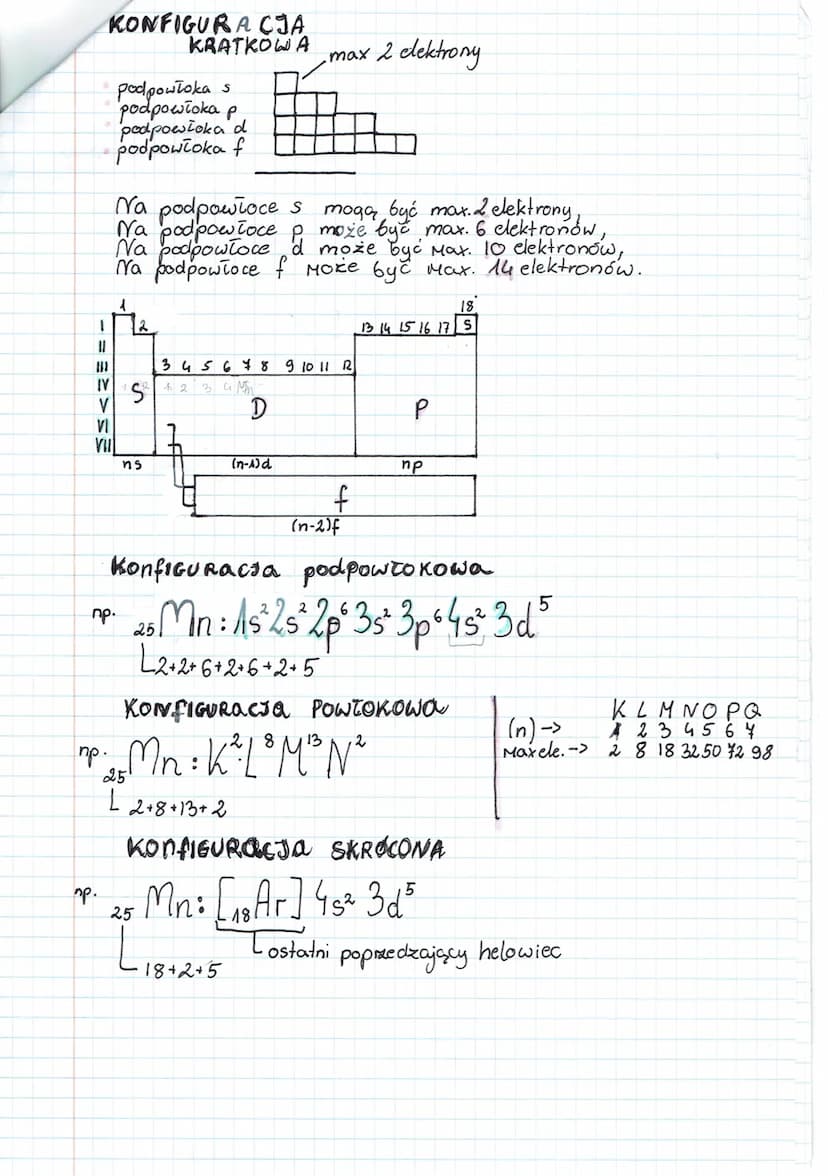 KONFIGURACJA
KRATKOWA
max 2 elektrony
podpowłoka s
podpowłoka p
podpowłoka d
podpowłoka f
Na podpowłoce s mogą być max. 2 elektrony,
Na podpowłoce p może być max. 6 elektronów,
Na podpowłoce d może być max. 10 elektronów,
Na podpowłoce f może być max. 14 elektronów.
1 18
I 2 13 14 15 16 17 S
II
III 3 4 5 6 7 8 9 10 11 12
IV S 1 2 3 4 Mn
V D P
VI
VII
ns (n-1)d np
f
(n-2)f
Konfiguracja podpowłokowa
np. ₂₅Mn: 1s² 2s² 2p⁶ 3s² 3p⁶ 4s² 3d⁵
2+2+6+2+6+2+5
Konfiguracja powłokowa
np. ₂₅Mn: K² L⁸ M¹³ N²
2+8+13+2
K L M N O P Q
(n) -> 1 2 3 4 5 6 7
Max ele. -> 2 8 18 32 50 72 98
Konfiguracja SKRÓCONA
np. ₂₅Mn: [₁₈Ar] 4s² 3d⁵
ostatni poprzedzający helowiec
18+2+5